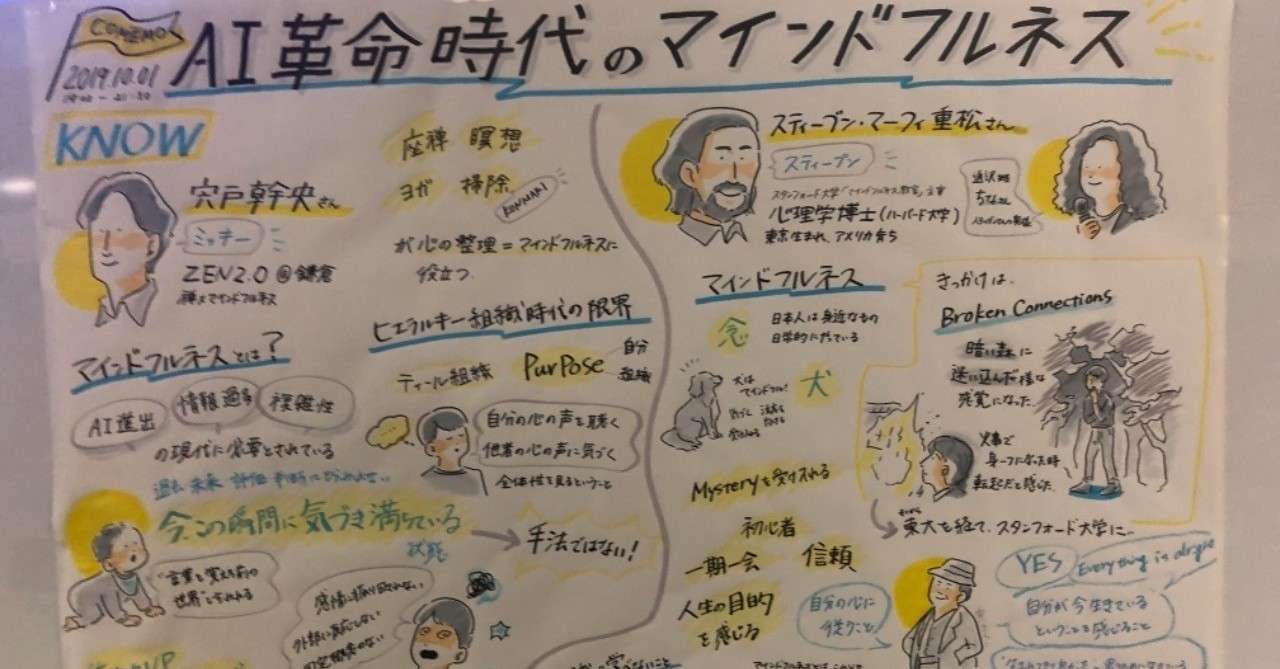 COMEMO
2019.10.01
AI革命時代のマインドフルネス
KNOW
宍戸幹央さん
ミッキー
ZEN2.0@鎌倉
禅×マインドフルネス
座禅 瞑想
ヨガ 掃除
KONMARI
が心の整理=マインドフルネスに
役立つ
マインドフルネスとは?
AI進出
情報過多
複雑性
の現代に必要とされている
過去 未来 評価 判断にとらわれない
今、この瞬間に気づき満ちている
状態
手法ではない!
"言葉を覚える前の
世界"ともいわれる
ヒエラルキー組織時代の限界
ティール組織
PurPose
自分
組織
自分の心の声を聴く
他者の心の声に気づく
全体性を見るということ
スティーブン・マーフィ重松さん
スティーブン
スタンフォード大学「マインドフルネス教室」主宰
心理学博士(ハーバード大学)
東京生まれ、アメリカ育ち
マインドフルネス
念
日本人は身近なもの
日常的にやっている
犬は
マインドフル!
犬
Mysteryを受け入れる
初心者
一期一会
信頼
人生の目的
を感じる
自分の心に
従うこと
きっかけは、
Broken Connections
暗い森に
迷い込んだ様な
感覚になった
火事で
身一つになった時
転起だと感じた
東大を経て、スタンフォード大学に…
YES
Everything is alright
自分が今生きている
ということを感じること